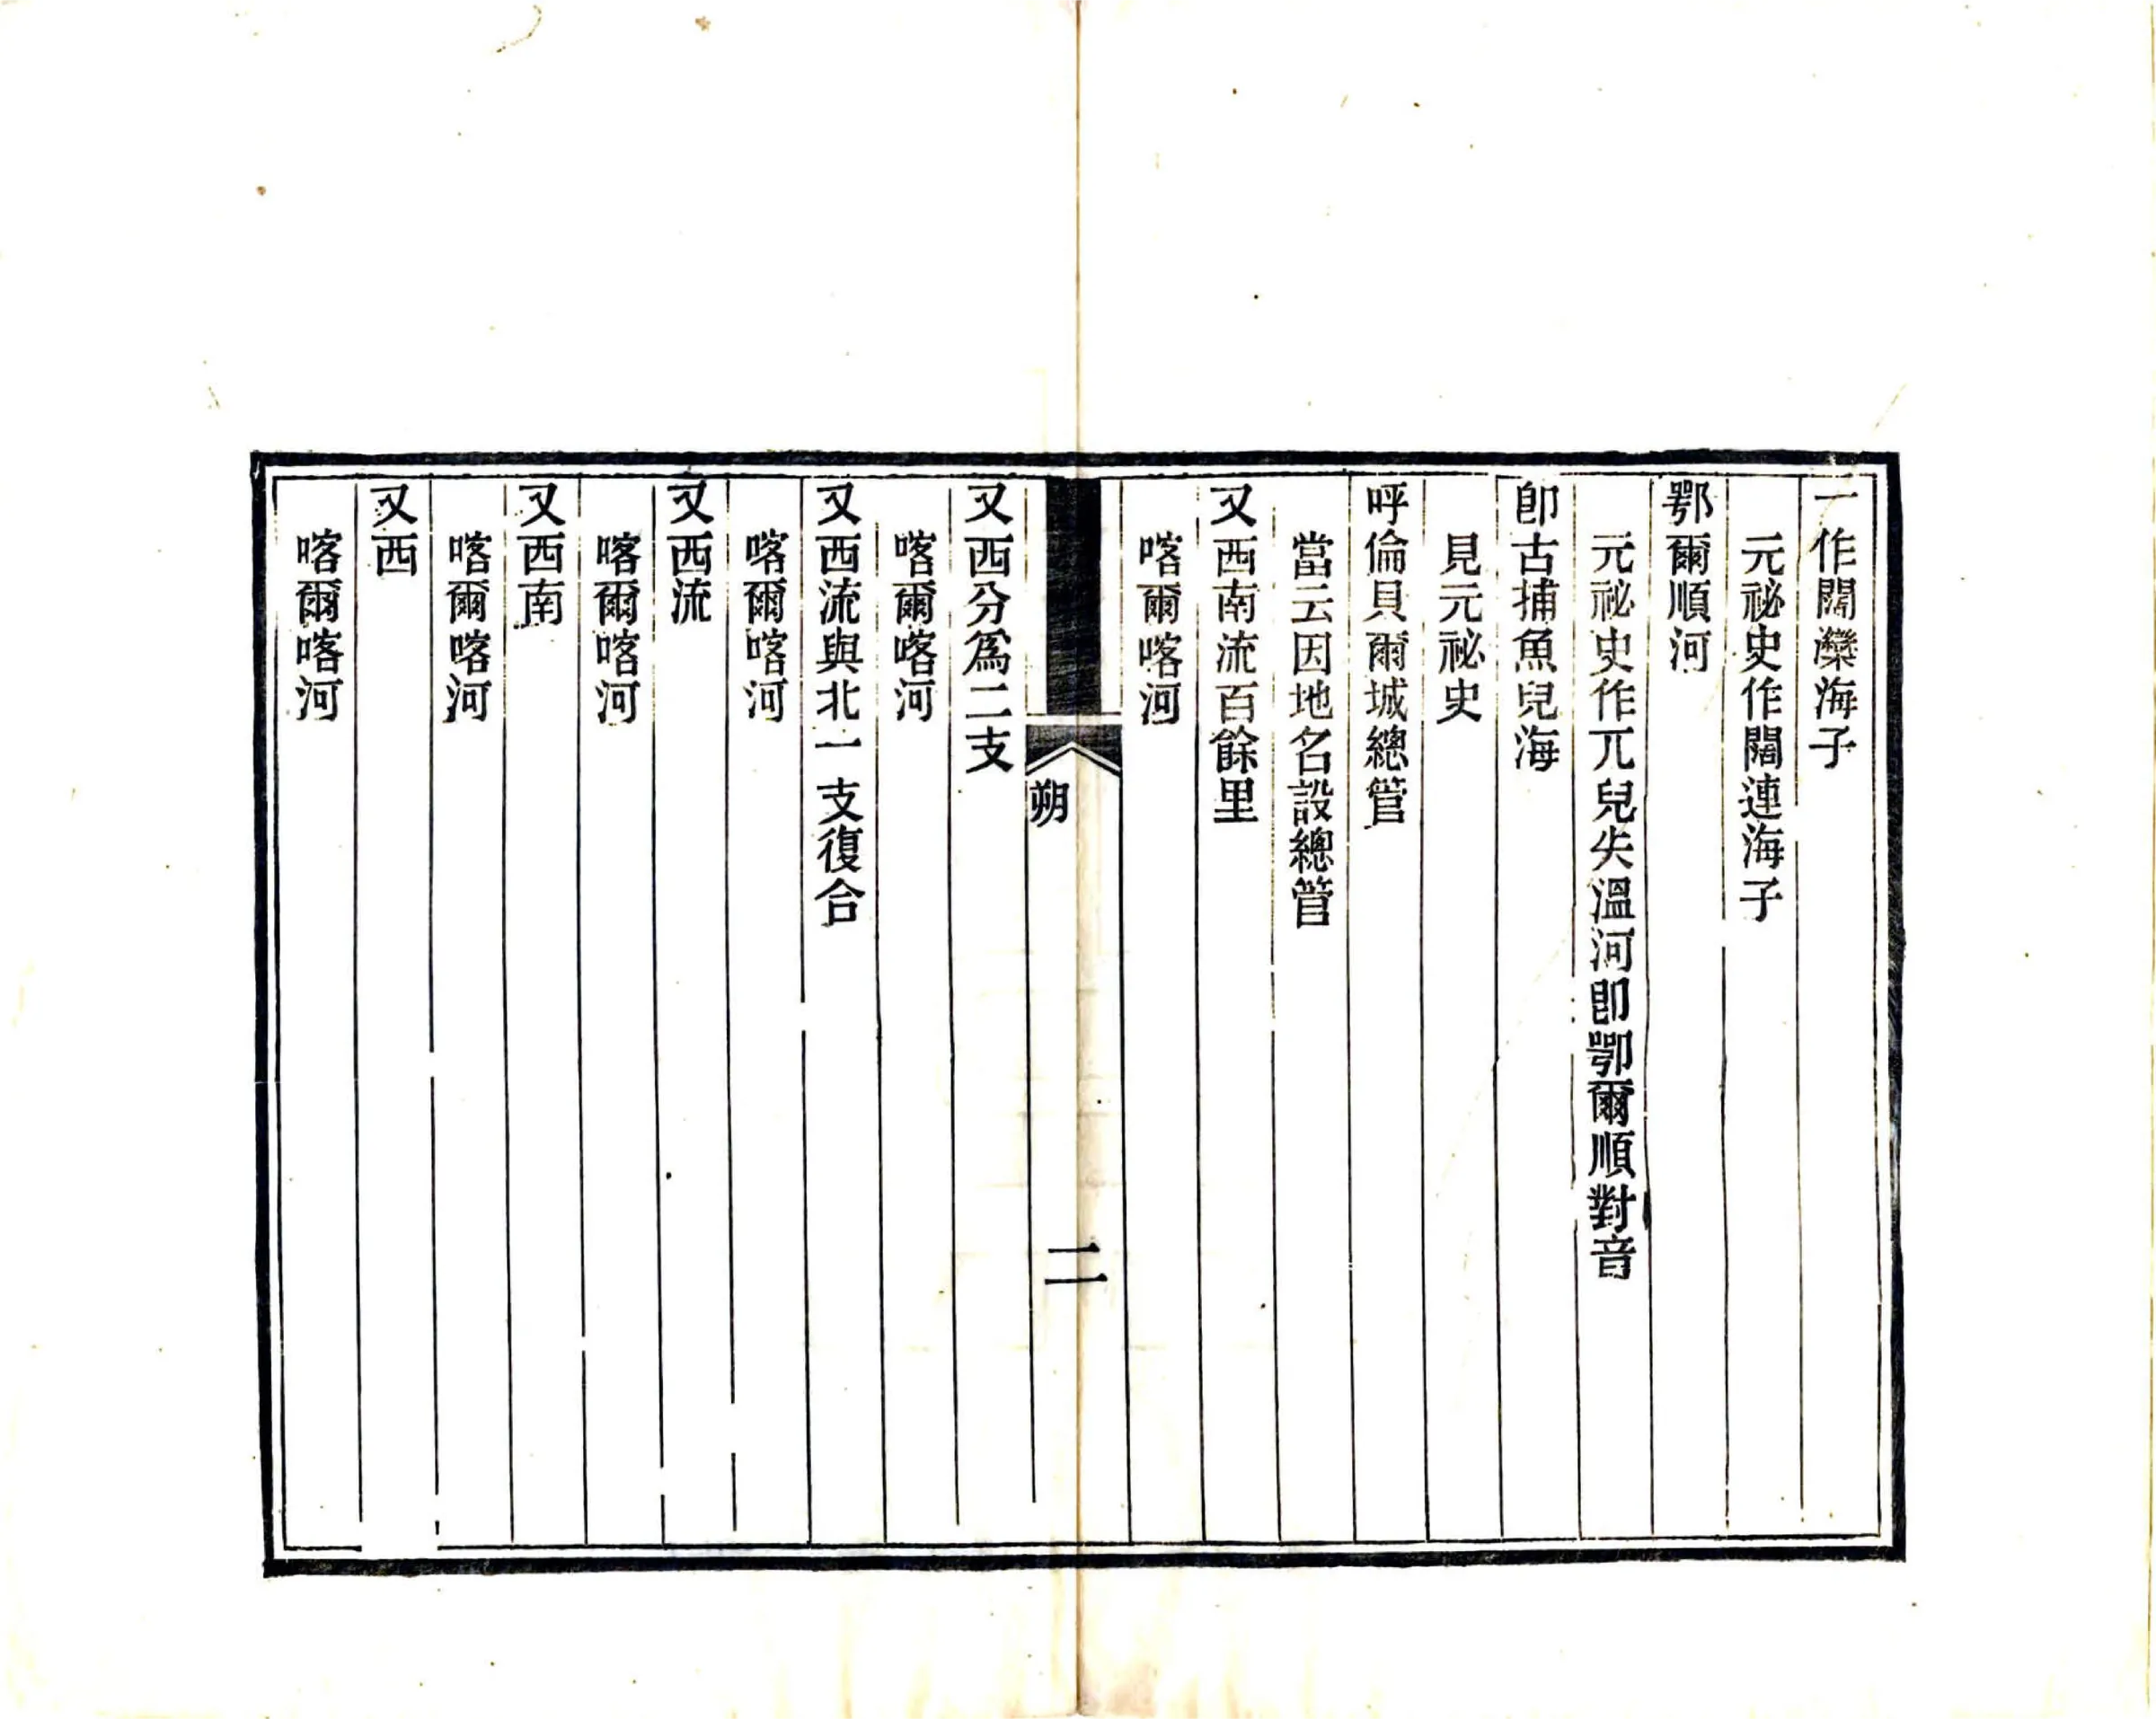 一作闊灤海子
元祕史作闊連海子
鄂爾順河
元祕史作兀兒失溫河卽鄂爾順對音
卽古捕魚兒海
見元祕史
呼倫貝爾城總管
當云因地名設總管
又西南流百餘里
喀爾喀河
朔
二
又西分爲二支
喀爾喀河
又西流與北一支復合
喀爾喀河
又西流
喀爾喀河
又西南
喀爾喀河
又西
喀爾喀河